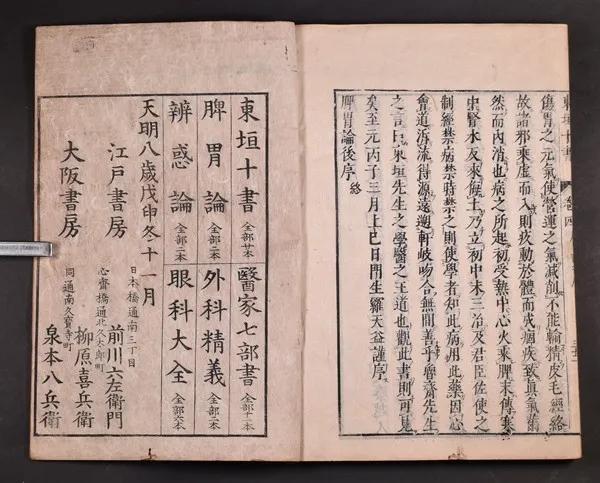 傷胃之元氣使營運之氣減削不能輸精皮毛經絡
故諸邪乘虛而入則痰動於體而成痼疾致真氣
然而內消也病之所起初受熱中心火乘脾末傳寒
中腎水反來侮土乃立初中末三治及君臣佐使之
制經禁病禁時禁之則使學者知此病用此藥因心
會通泝流得源遠遡軒岐吻合無間善乎魯齋先生
之言曰東垣先生之學醫之王道也觀此書則可見
矣至元丙子三月上巳日門生羅天益謹序
脾胃論後序 終
東垣十書 全部廿本 醫家七部書 全部十一本
脾胃論 全部二本 外科精義 全部二本
辨惑論 全部二本 眼科大全 全部六本
天明八歳戊申冬十一月
江戸書房 日本橋通南三丁目 前川六左衛門
大阪書房 心齋橋通北久太郎町 柳原喜兵衛
同通南久寶寺町 泉本八兵衛